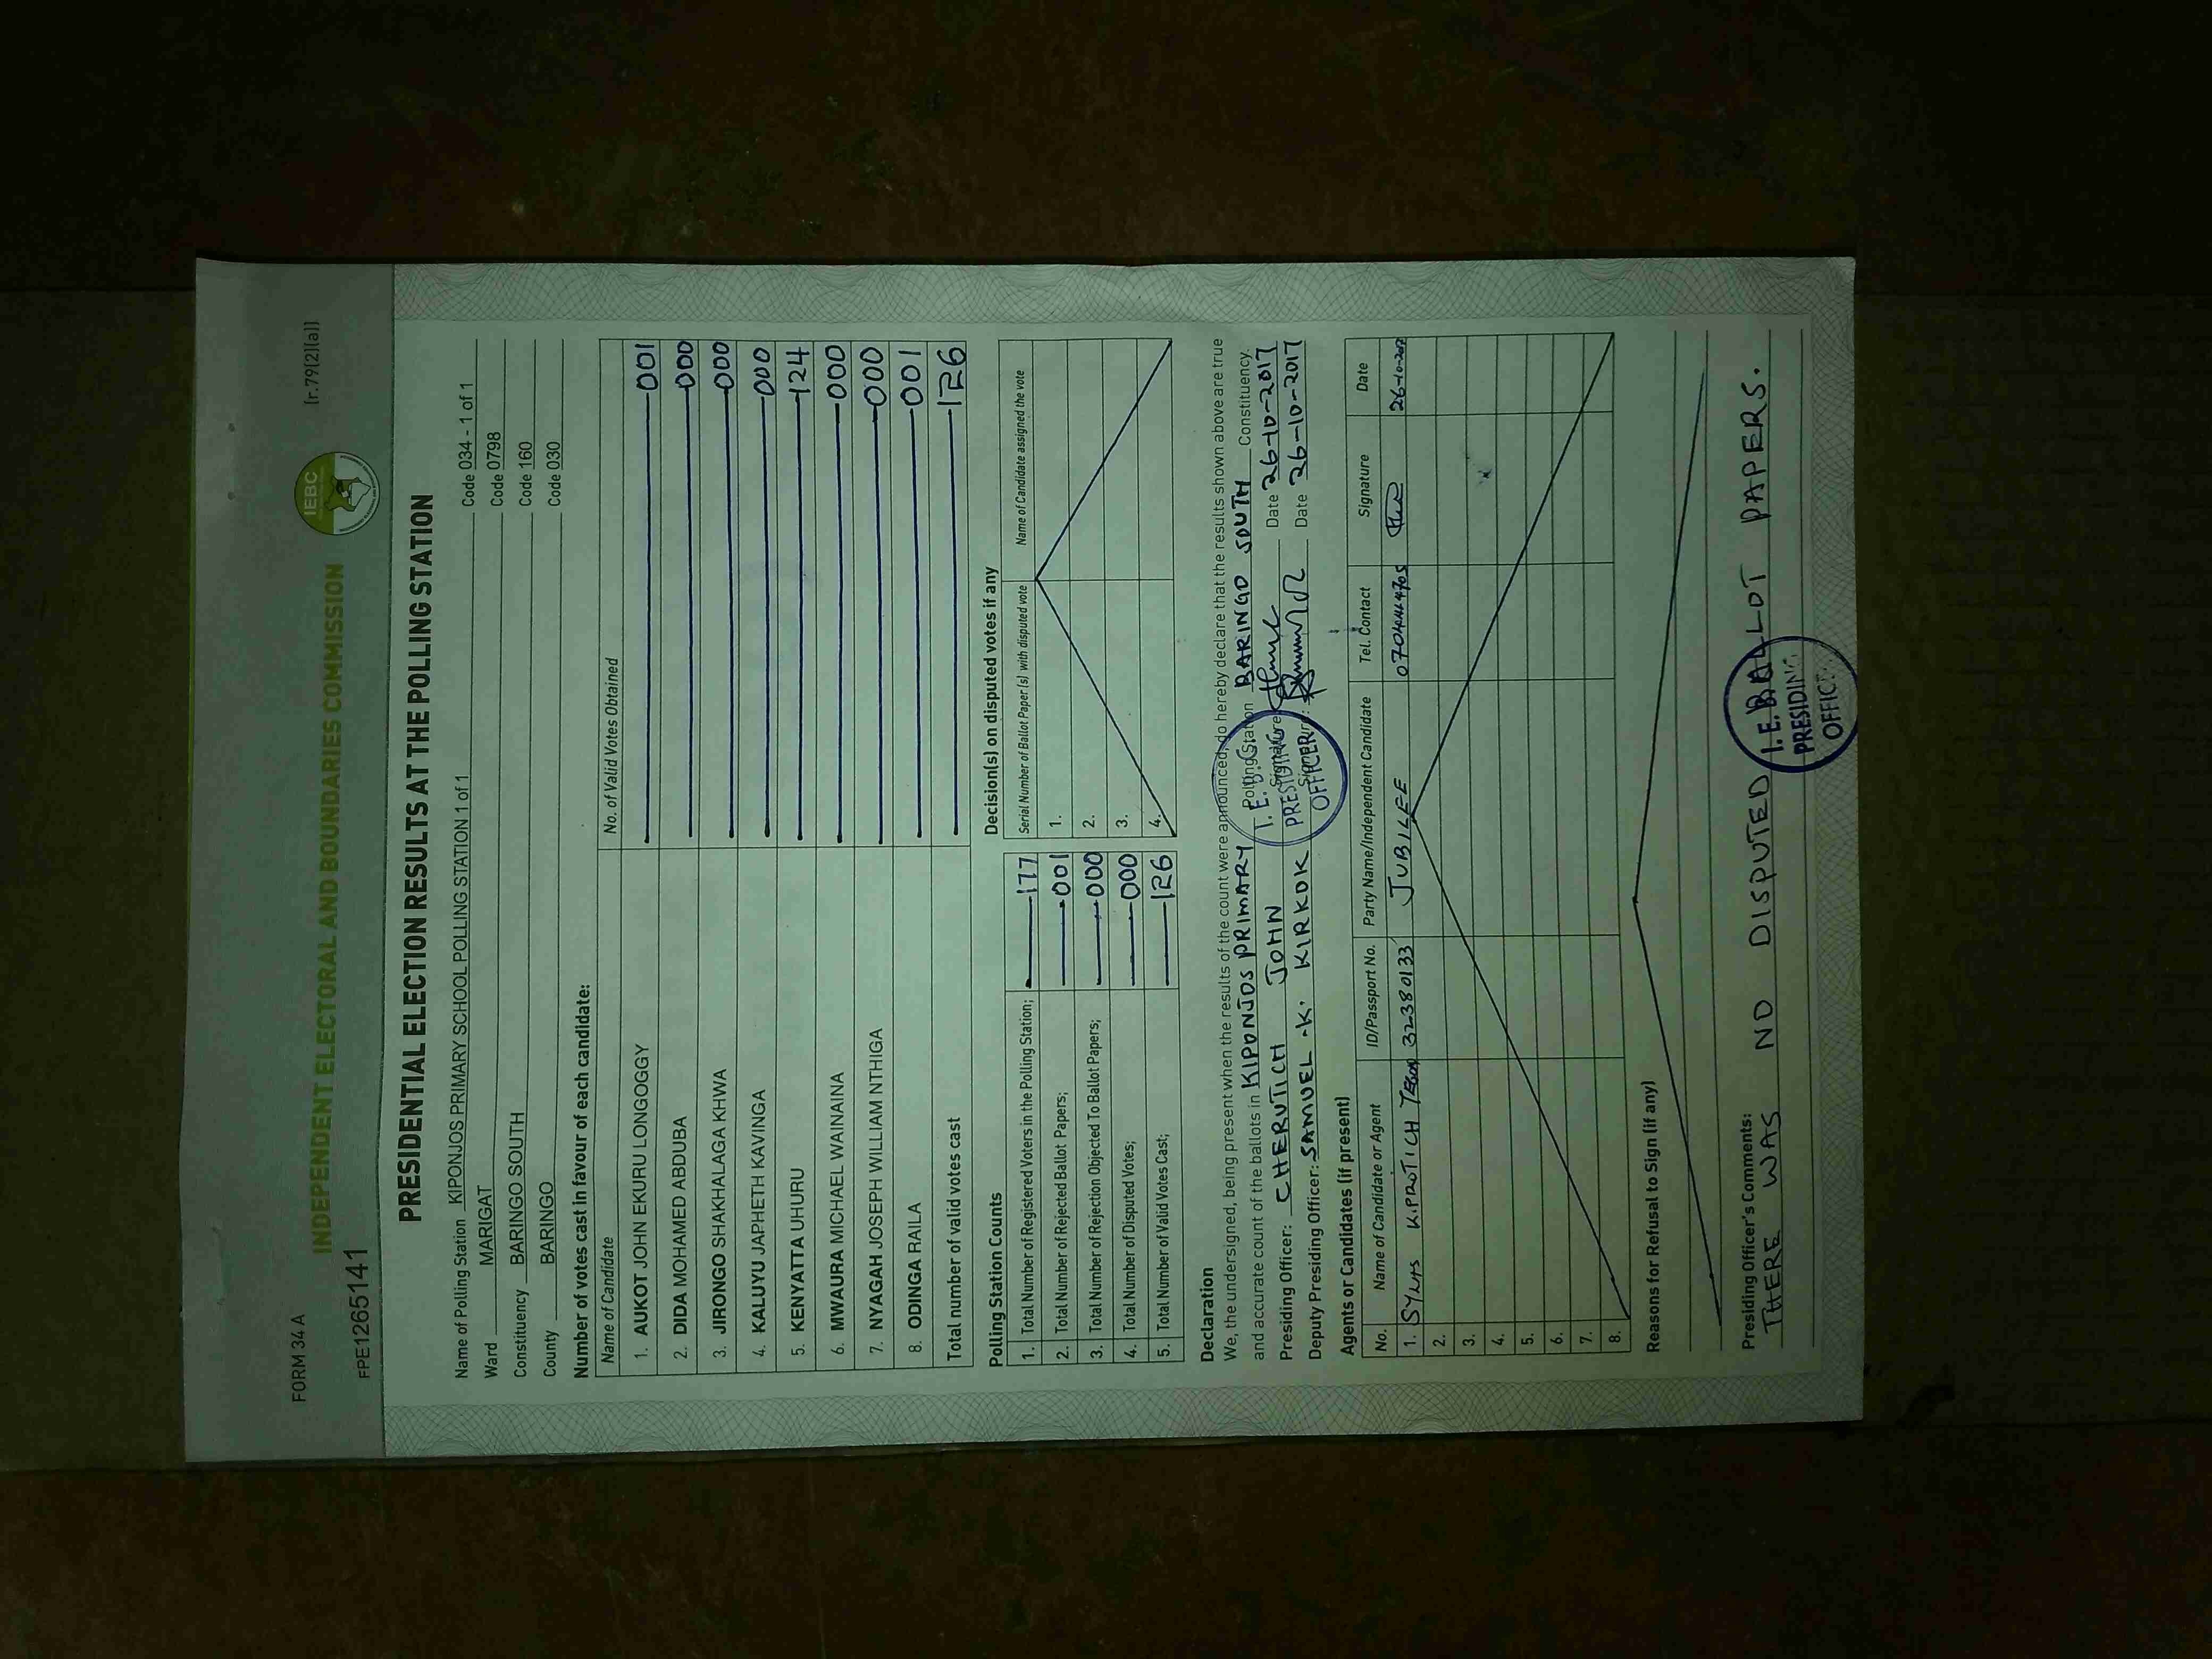 FORM 34 A
[r.79(2)(a)]
INDEPENDENT ELECTORAL AND BOUNDARIES COMMISSION
IEBC
FPE1265141
PRESIDENTIAL ELECTION RESULTS AT THE POLLING STATION
Name of Polling Station KIPONJOS PRIMARY SCHOOL POLLING STATION 1 of 1 Code 034 - 1 of 1
Ward MARIGAT Code 0798
Constituency BARINGO SOUTH Code 160
County BARINGO Code 030
Number of votes cast in favour of each candidate:
Name of Candidate No. of Valid Votes Obtained
1. AUKOT JOHN EKURU LONGOGGY 001
2. DIDA MOHAMED ABDUBA 000
3. JIRONGO SHAKHALAGA KHWA 000
4. KALUYU JAPHETH KAVINGA 000
5. KENYATTA UHURU 124
6. MWAURA MICHAEL WAINAINA 000
7. NYAGAH JOSEPH WILLIAM NTHIGA 000
8. ODINGA RAILA 001
Total number of valid votes cast 126
Polling Station Counts
1. Total Number of Registered Voters in the Polling Station; 177
2. Total Number of Rejected Ballot Papers; 001
3. Total Number of Rejection Objected To Ballot Papers; 000
4. Total Number of Disputed Votes; 000
5. Total Number of Valid Votes Cast; 126
Decision(s) on disputed votes if any
Serial Number of Ballot Paper(s) with disputed vote Name of Candidate assigned the vote
1.
2.
3.
4.
Declaration
We, the undersigned, being present when the results of the count were announced, do hereby declare that the results shown above are true
and accurate count of the ballots in KIPONJOS PRIMARY Polling Station BARINGO SOUTH Constituency.
Presiding Officer: CHERUTICH JOHN Signature: Date 26-10-2017
Deputy Presiding Officer: SAMUEL .K. KIRKOK Signature: Date 26-10-2017
I.E.B.C.
PRESIDING
OFFICER
Agents or Candidates (if present)
No. Name of Candidate or Agent ID/Passport No. Party Name/Independent Candidate Tel. Contact Signature Date
1. KIPROTICH 32380133 JUBILEE 26-10-2017
2.
3.
4.
5.
6.
7.
8.
Reasons for Refusal to Sign (if any)
Presiding Officer's Comments:
THERE WAS NO DISPUTED BALLOT PAPERS.
I.E.B.
PRESIDING
OFFIC